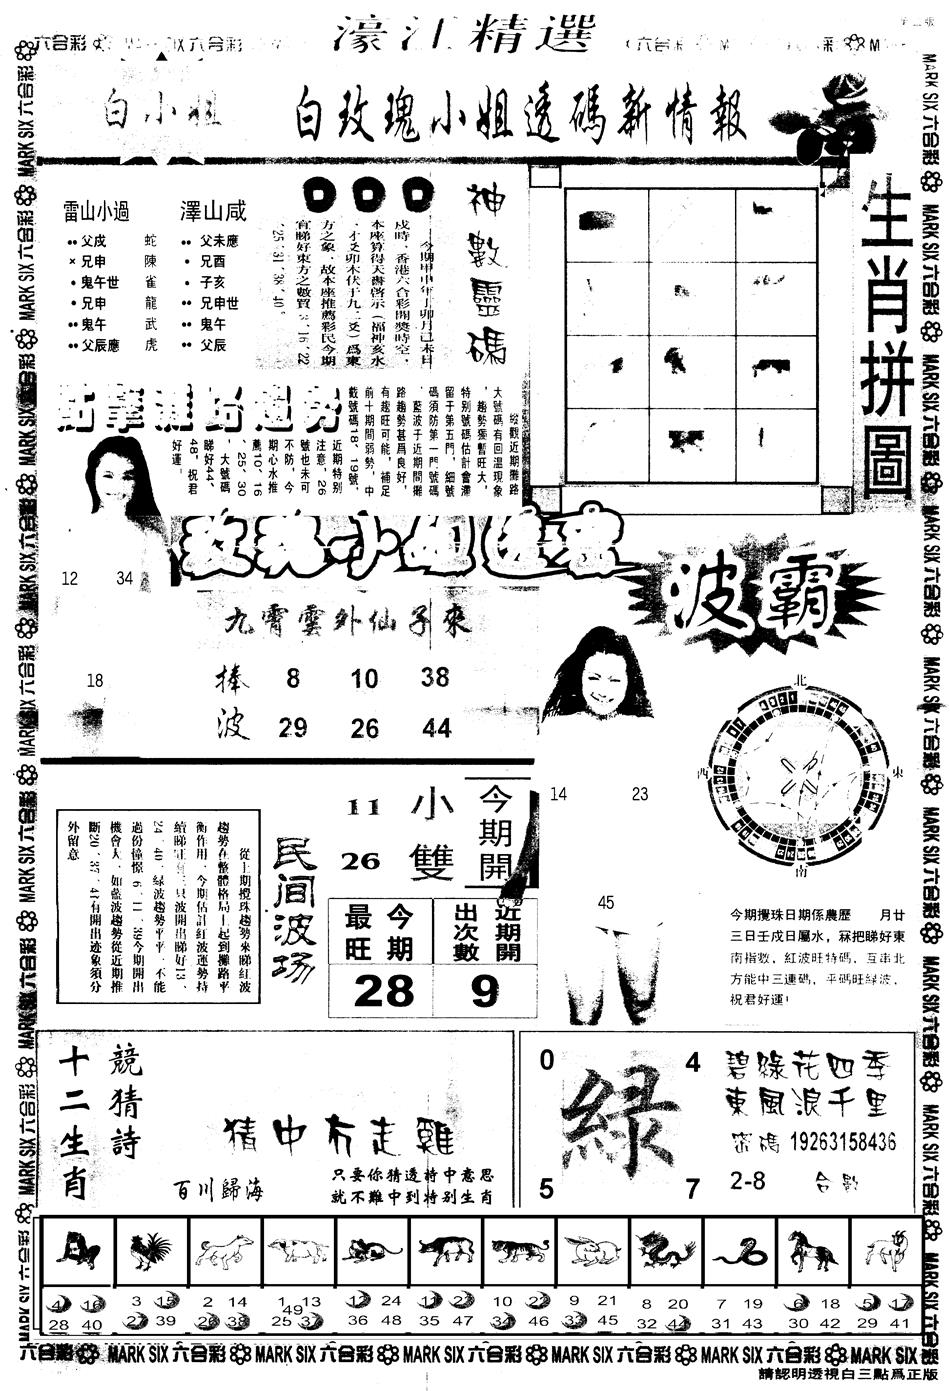 濠江精選
白小姐
白玫瑰小姐透碼新情報
雷山小過
父戌 蛇
兄申 陳
鬼午世 雀
兄申 龍
鬼午 武
父辰應 虎
澤山咸
父未應
兄酉
子亥
兄申世
鬼午
父辰
神數靈碼
戌時，香港六合彩開獎時空，
本座算得天書啓示（福神亥水
方之象，故本座推薦彩民今期
25、31、38、40。
生肖拼圖
縱觀近期攤路
大號碼有回溫現象
，趨勢獨暫旺大，
特別號碼估計會滯
留于第五門，細號
碼須防第一門號碼
，藍波于近期間攤
路趨勢甚爲良好，
有趨旺可能，補足
前十期間弱勢，中
載號碼18、19號，
近期特别
注意，26
號也未可
不防，今
期心水推
薦10、16
、25、30
，大號碼
睇好44、
48，祝君
好運。
12 34
18
九霄雲外仙子來
捧波
8 10 38
29 26 44
波霸
14 23
45
北
西 東
南
今期攪珠日期係農歷 月廿
三日壬戌日屬水，冧把睇好東
南指數，紅波旺特碼，互串北
方能中三連碼，平碼旺緑波，
祝君好運！
從上期攪珠趨勢來睇紅波
趨勢在整體格局上起到攤路平
衡作用，今期估計紅波運勢持
24、40，緑波趨勢平平，不能
過份憧憬6、11、39今期開出
機會大，如藍波趨勢從近期推
斷20、37、41有開出迹象須分
外留意
民间波场
11 小
26 雙
今期開
今期最旺
28
近期開出次數
9
十二生肖
競猜詩
猜中冇走雞
百川歸海
只要你猜透詩中意思
就不難中到特别生肖
0 4
5 7
緑
碧綠花四季
東風浪千里
密碼 19263158436
2-8 合數
4 16 28 40
3 15 27 39
2 14 26 38
1 13 25 37 49
12 24 36 48
11 23 35 47
10 22 34 46
9 21 33 45
8 20 32 44
7 19 31 43
6 18 30 42
5 17 29 41
六合彩 MARK SIX 六合彩 MARK SIX 六合彩 MARK SIX 六合彩 MARK SIX 六合彩 MARK SIX 六合彩 MARK SIX 六合彩
請認明透視白三點爲正版